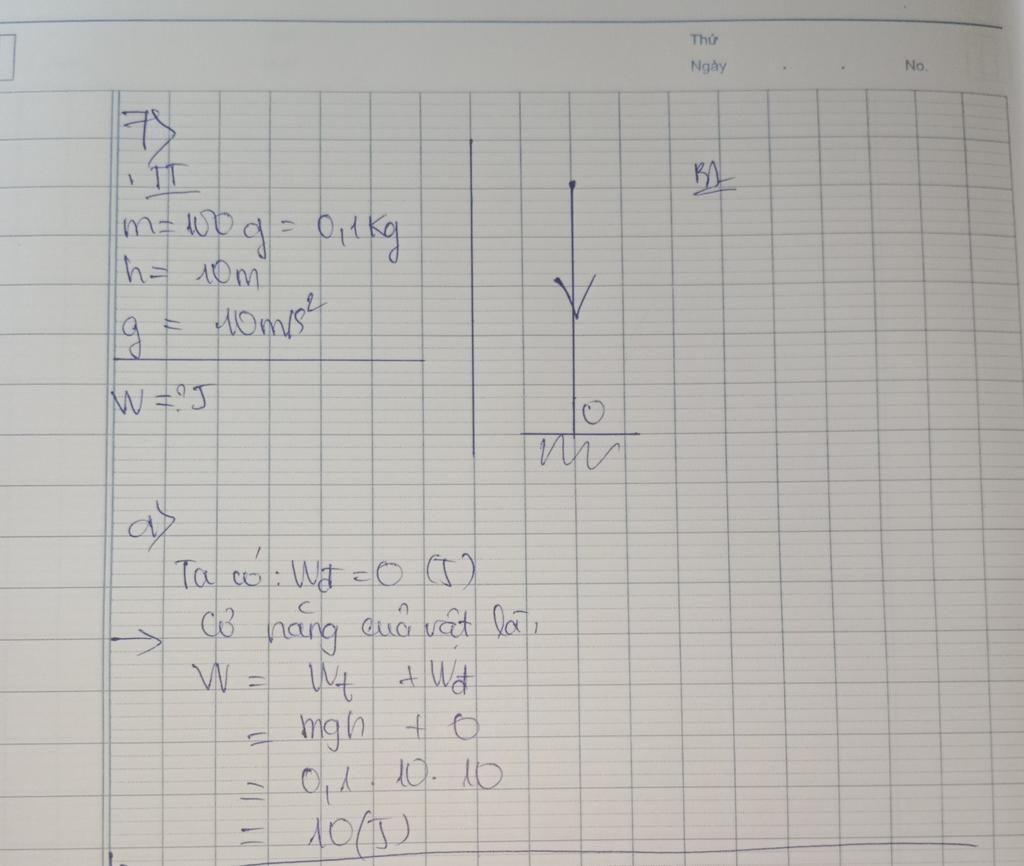 Thứ
Ngày . . No.
7>
. TT
m = 100 g = 0,1 Kg
h = 10m
g = 10m/s²
W = ? J
O
a>
Ta có : Wđ = 0 (J)
→ Cơ năng của vật là,
W = Wt + Wđ
= mgh + 0
= 0,1 . 10 . 10
= 10 (J)